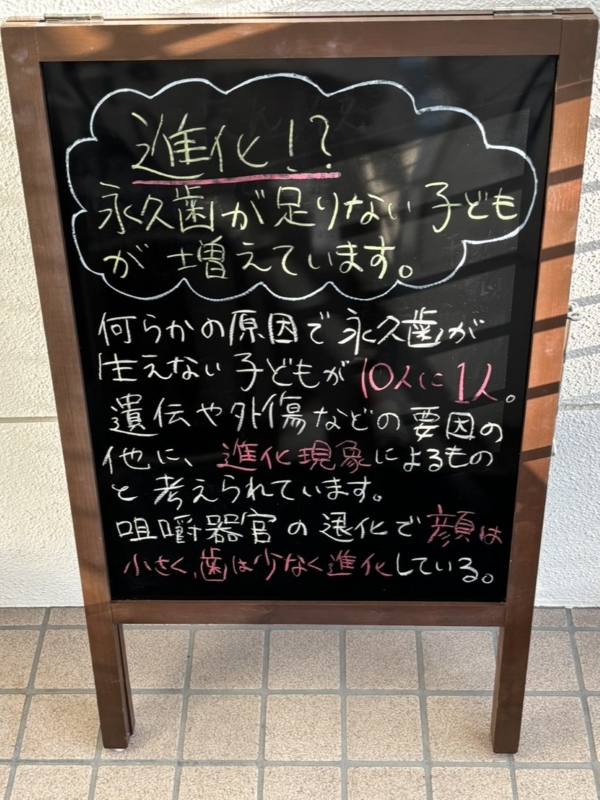 進化!?
永久歯が足りない子ども
が増えています。
何らかの原因で永久歯が
生えない子どもが10人に1人。
遺伝や外傷などの要因の
他に、進化現象によるもの
と考えられています。
咀嚼器官の退化で顔は
小さく、歯は少なく進化している。